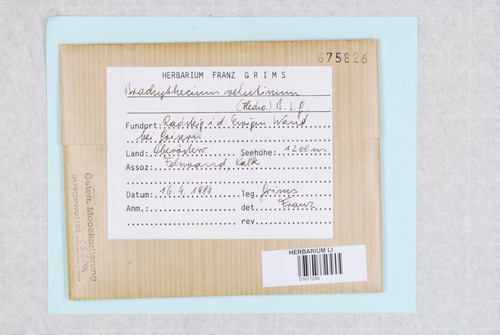 675826
HERBARIUM FRANZ GRIMS
Brachythecium velutinum
(Hedw.) B.S.G.
Fundort: Radsteig i.d. Ewigen Wand
bei Goisern
Land: Oberösterr. Seehöhe: 1200m
Assoz: Felswand, Kalk
Datum: 16.4.1989 leg. Grims
Anm.: det. Franz
rev.
Österr. Mooskartierung
ausgewertet
HERBARIUM LI